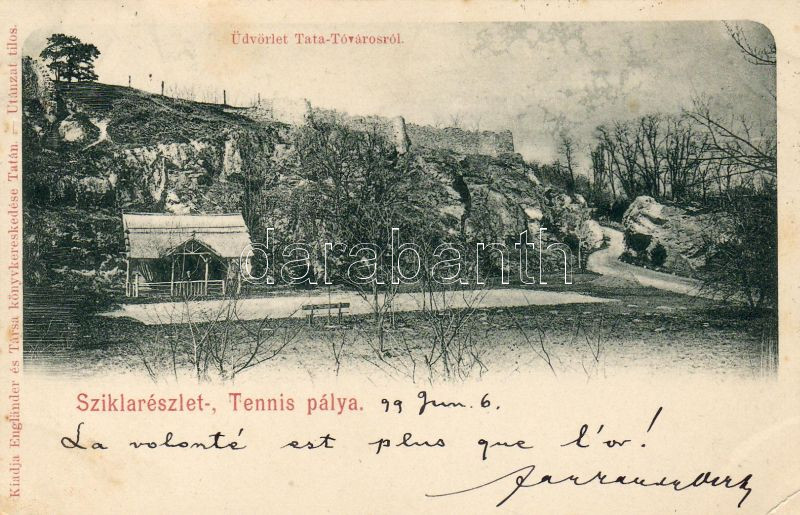 Üdvörlet Tata-Tóvárosról.
Kiadja Engländer és Társa könyvkereskedése Tatán. — Utánzat tilos.
darabanth
Sziklarészlet-, Tennis pálya. 99 Jun. 6.
La volonté est plus que l'or!